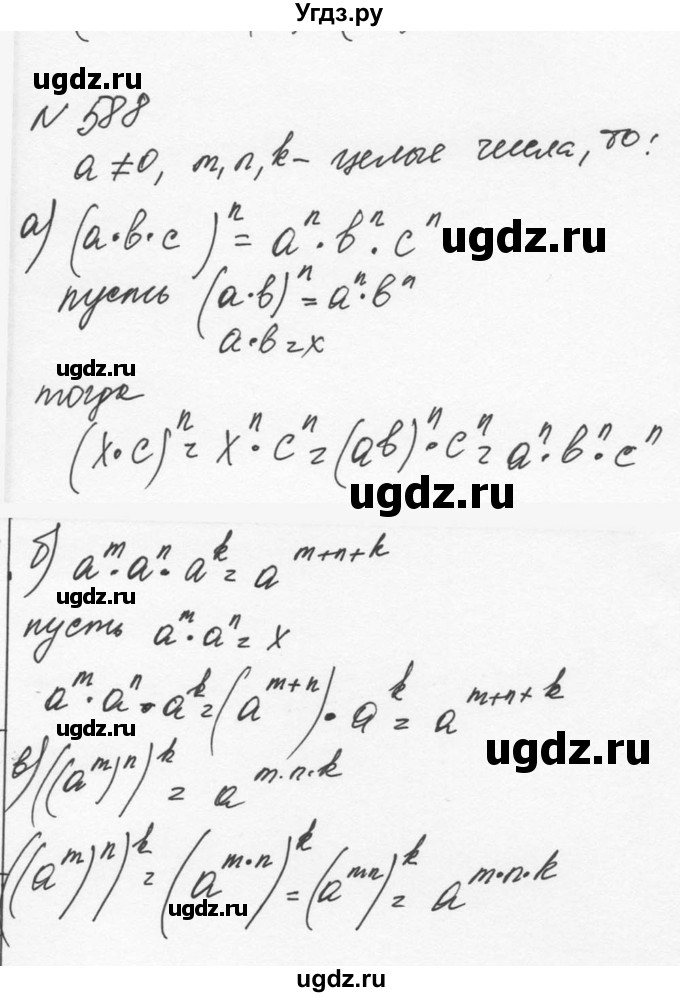 Угдз.ру
ugdz.ru
N 588
a ≠ 0, m, n, k – целые числа, то:
а) (a·b·c)ⁿ = aⁿ·bⁿ·cⁿ ugdz.ru
пусть (a·b)ⁿ = aⁿ·bⁿ
a·b = x
ugdz.ru
тогда
(x·c)ⁿ = xⁿ·cⁿ = (ab)ⁿ·cⁿ = aⁿ·bⁿ·cⁿ
ugdz.ru
б) aᵐ·aⁿ·aᵏ = aᵐ⁺ⁿ⁺ᵏ
ugdz.ru
пусть aᵐ·aⁿ = x
aᵐ·aⁿ·aᵏ = (aᵐ⁺ⁿ)·aᵏ = aᵐ⁺ⁿ⁺ᵏ
ugdz.ru
ugdz.ru
в) ((aᵐ)ⁿ)ᵏ = aᵐ·ⁿ·ᵏ
((aᵐ)ⁿ)ᵏ = (aᵐ·ⁿ)ᵏ = (aᵐⁿ)ᵏ = aᵐ·ⁿ·ᵏ
ugdz.ru
ugdz.ru